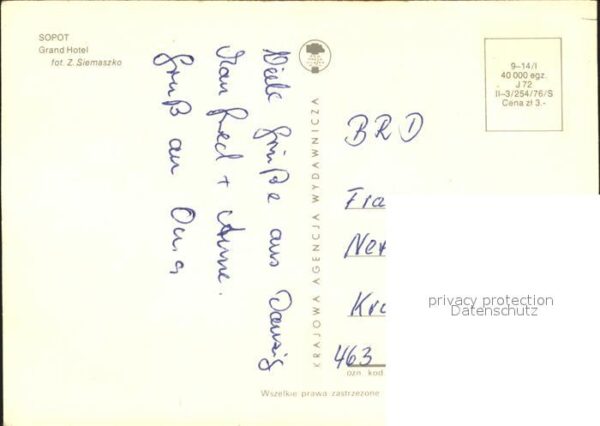 SOPOT
Grand Hotel
fot. Z. Siemaszko
Viele Grüße aus Danzig
Manfred + Anne.
Gruß an Oma
KRAJOWA AGENCJA WYDAWNICZA
9–14/I
40 000 egz.
J 72
II–3/254/76/S
Cena zł 3.-
BRD
463
ozn. kod
Wszelkie prawa zastrzeżone
privacy protection
Datenschutz